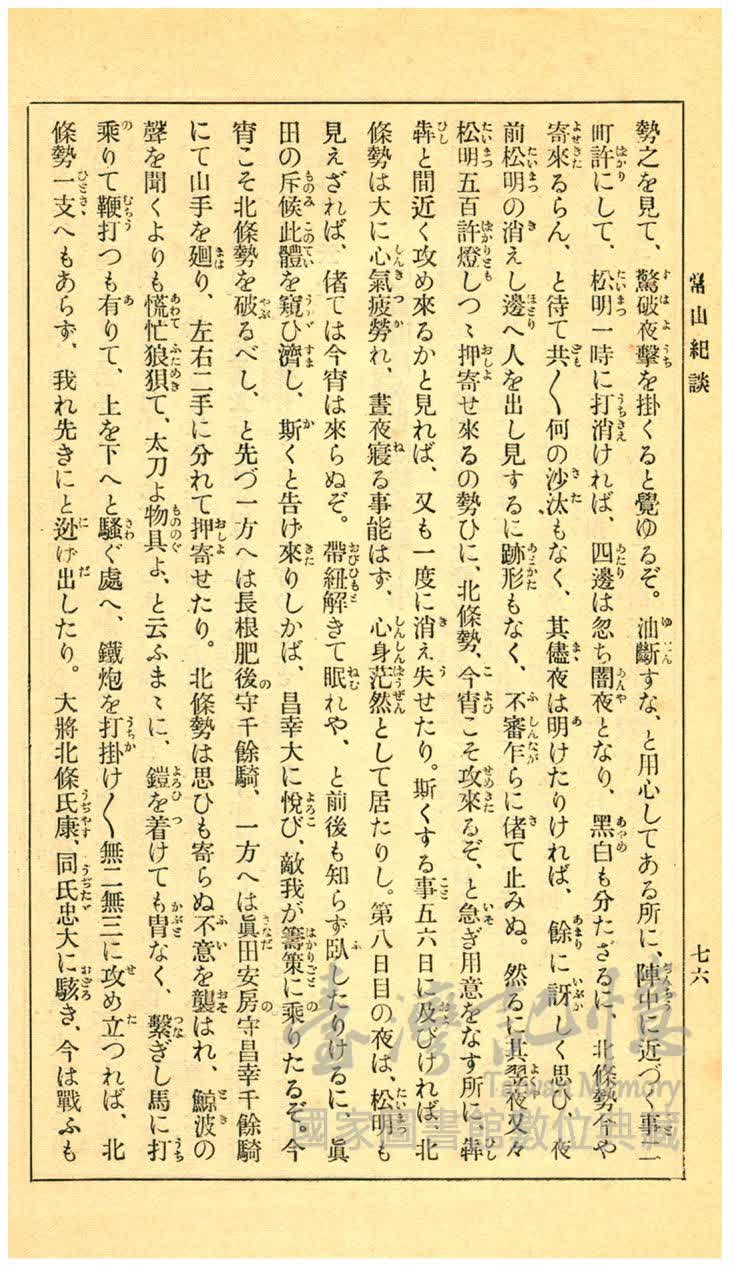 常山紀談
七六
勢之を見て、驚破夜擊を掛くると覺ゆるぞ。油斷すな、と用心してある所に、陣中に近づく事二
町許にして、松明一時に打消ければ、四邊は忽ち闇夜となり、黑白も分たざるに、北條勢今や
寄來るらん、と待て共〳〵何の沙汰もなく、其儘夜は明けたりければ、餘に訝しく思ひ、夜
前松明の消えし邊へ人を出し見するに跡形もなく、不審乍らに偖て止みぬ。然るに其翌夜又々
松明五百許燈しつゝ押寄せ來るの勢ひに、北條勢、今宵こそ攻來るぞ、と急ぎ用意をなす所に、犇
犇と間近く攻め來るかと見れば、又も一度に消え失せたり。斯くする事五六日に及びければ、北
條勢は大に心氣疲勞れ、晝夜寢る事能はず、心身茫然として居たりし。第八日目の夜は、松明も
見えざれば、偖ては今宵は來らぬぞ。帶紐解きて眠れや、と前後も知らず臥したりけるに、眞
田の斥候此體を窺ひ濟し、斯くと告げ來りしかば、昌幸大に悅び、敵我が籌策に乘りたるぞ。今
宵こそ北條勢を破るべし、と先づ一方へは長根肥後守千餘騎、一方へは眞田安房守昌幸千餘騎
にて山手を廻り、左右二手に分れて押寄せたり。北條勢は思ひも寄らぬ不意を襲はれ、鯨波の
聲を聞くよりも慌忙狼狽て、太刀よ物具よ、と云ふまゝに、鎧を着けても冑なく、繫ぎし馬に打
乘りて鞭打つも有りて、上を下へと騷ぐ處へ、鐵炮を打掛け〳〵無二無三に攻め立つれば、北
條勢一支へもあらず、我れ先きにと迯げ出したり。大將北條氏康、同氏忠大に駭き、今は戰ふも
臺灣記憶
Taiwan Memory
國家圖書館數位典藏